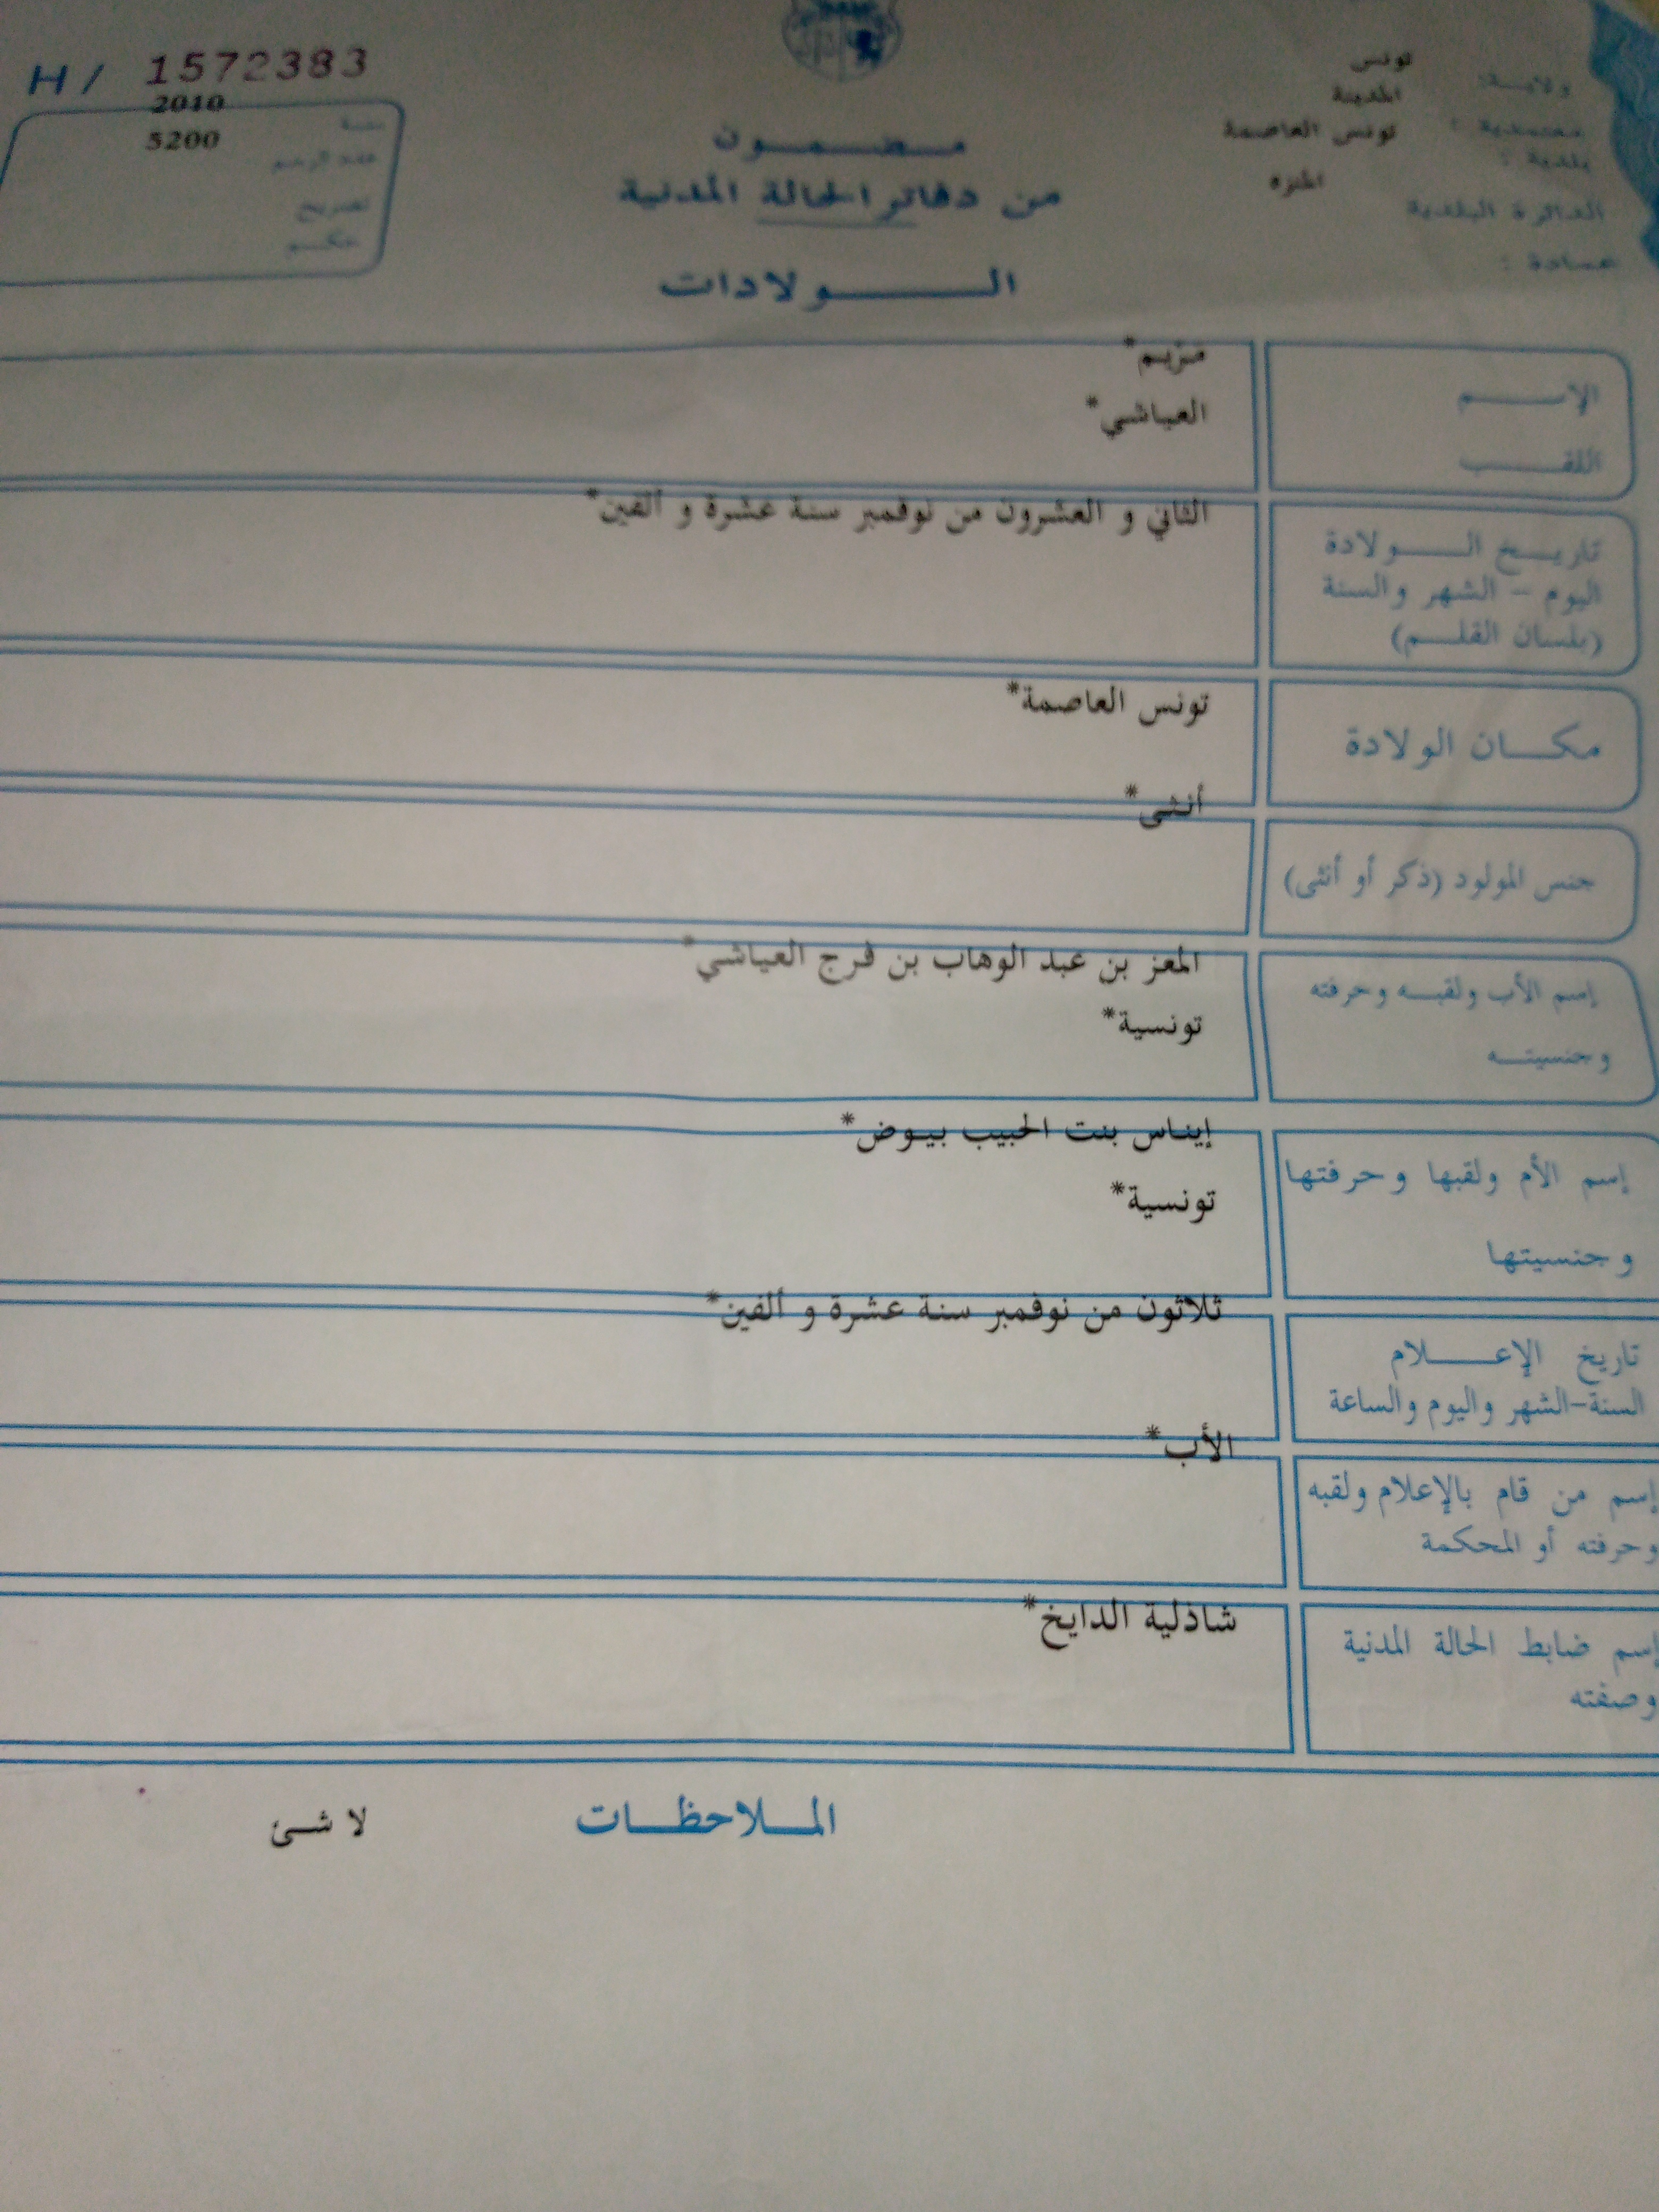 H/ 1572383
سنة 2010
عدد الرسم 5200
تصريح
حكم
ولاية: تونس
معتمدية : المدينة
بلدية : تونس العاصمة
الدائرة البلدية المنزه
عمادة :
مضمون
من دفاتر الحالة المدنية
الولادات
الإسم مريم*
اللقب العياشي*
تاريخ الولادة الثاني و العشرون من نوفمبر سنة عشرة و ألفين*
اليوم - الشهر والسنة
(بلسان القلم)
مكان الولادة تونس العاصمة*
جنس المولود (ذكر أو أنثى) أنثى*
إسم الأب ولقبه وحرفته المعز بن عبد الوهاب بن فرج العياشي*
وجنسيته تونسية*
إسم الأم ولقبها وحرفتها إيناس بنت الحبيب بيوض*
وجنسيتها تونسية*
تاريخ الإعلام ثلاثون من نوفمبر سنة عشرة و ألفين*
السنة-الشهر واليوم والساعة
إسم من قام بالإعلام ولقبه الأب*
وحرفته أو المحكمة
إسم ضابط الحالة المدنية شاذلية الدايخ*
وصفته
الملاحظات لا شئ